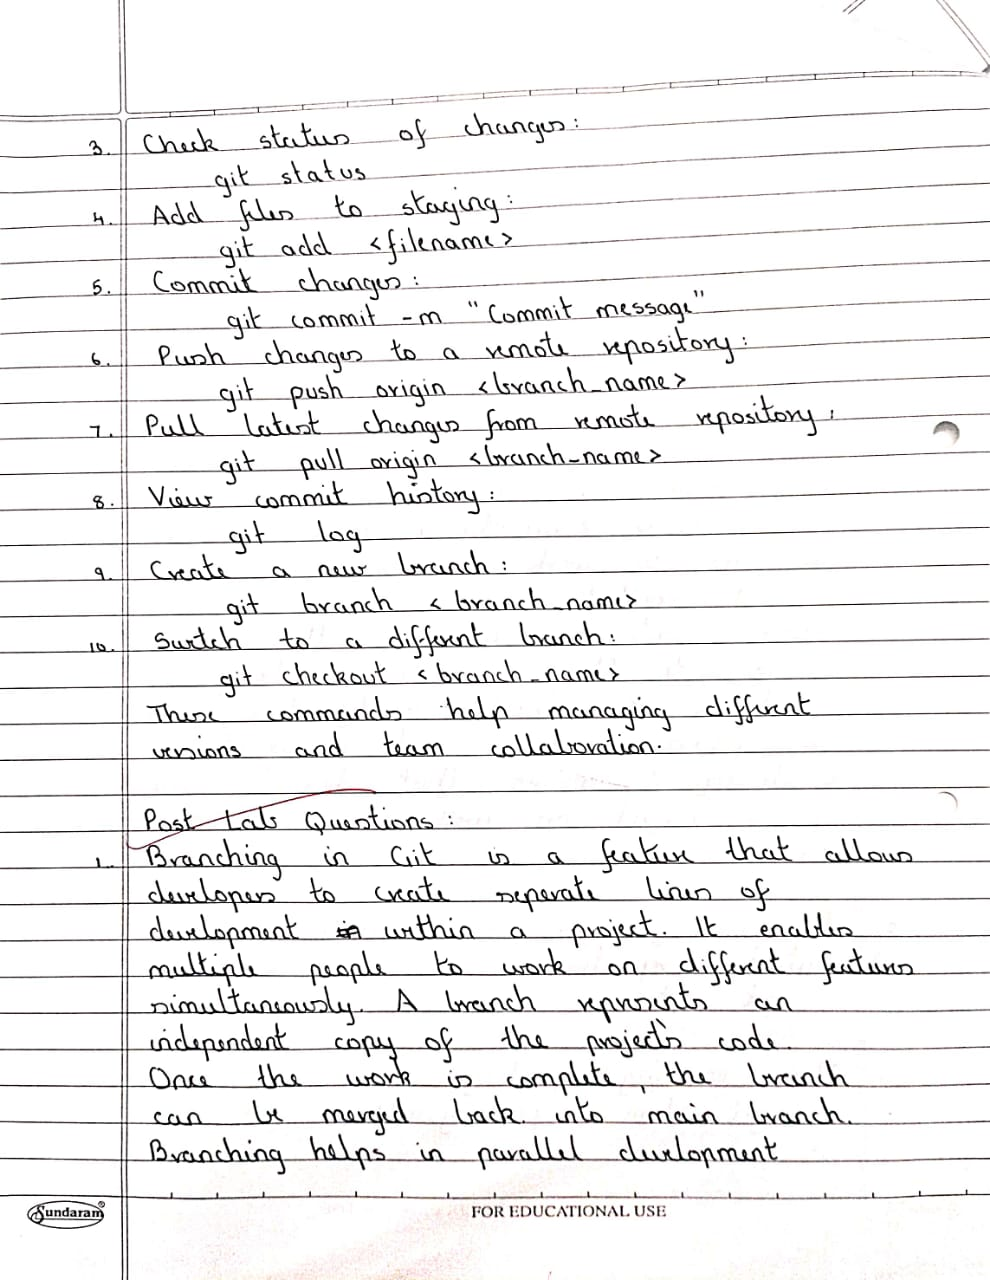 3. Check status of changes:
git status
4. Add files to staging:
git add <filename>
5. Commit changes:
git commit -m "Commit message"
6. Push changes to a remote repository:
git push origin <branch_name>
7. Pull latest changes from remote repository:
git pull origin <branch_name>
8. View commit history:
git log
9. Create a new branch:
git branch <branch_name>
10. Switch to a different branch:
git checkout <branch_name>
These commands help managing different
versions and team collaboration.
Post Lab Questions:
1. Branching in Git is a feature that allows
developers to create seperate lines of
development within a project. It enables
multiple people to work on different features
simultaneously. A branch represents an
independent copy of the project's code.
Once the work is complete, the branch
can be merged back into main branch.
Branching helps in parallel development
Sundaram®
FOR EDUCATIONAL USE